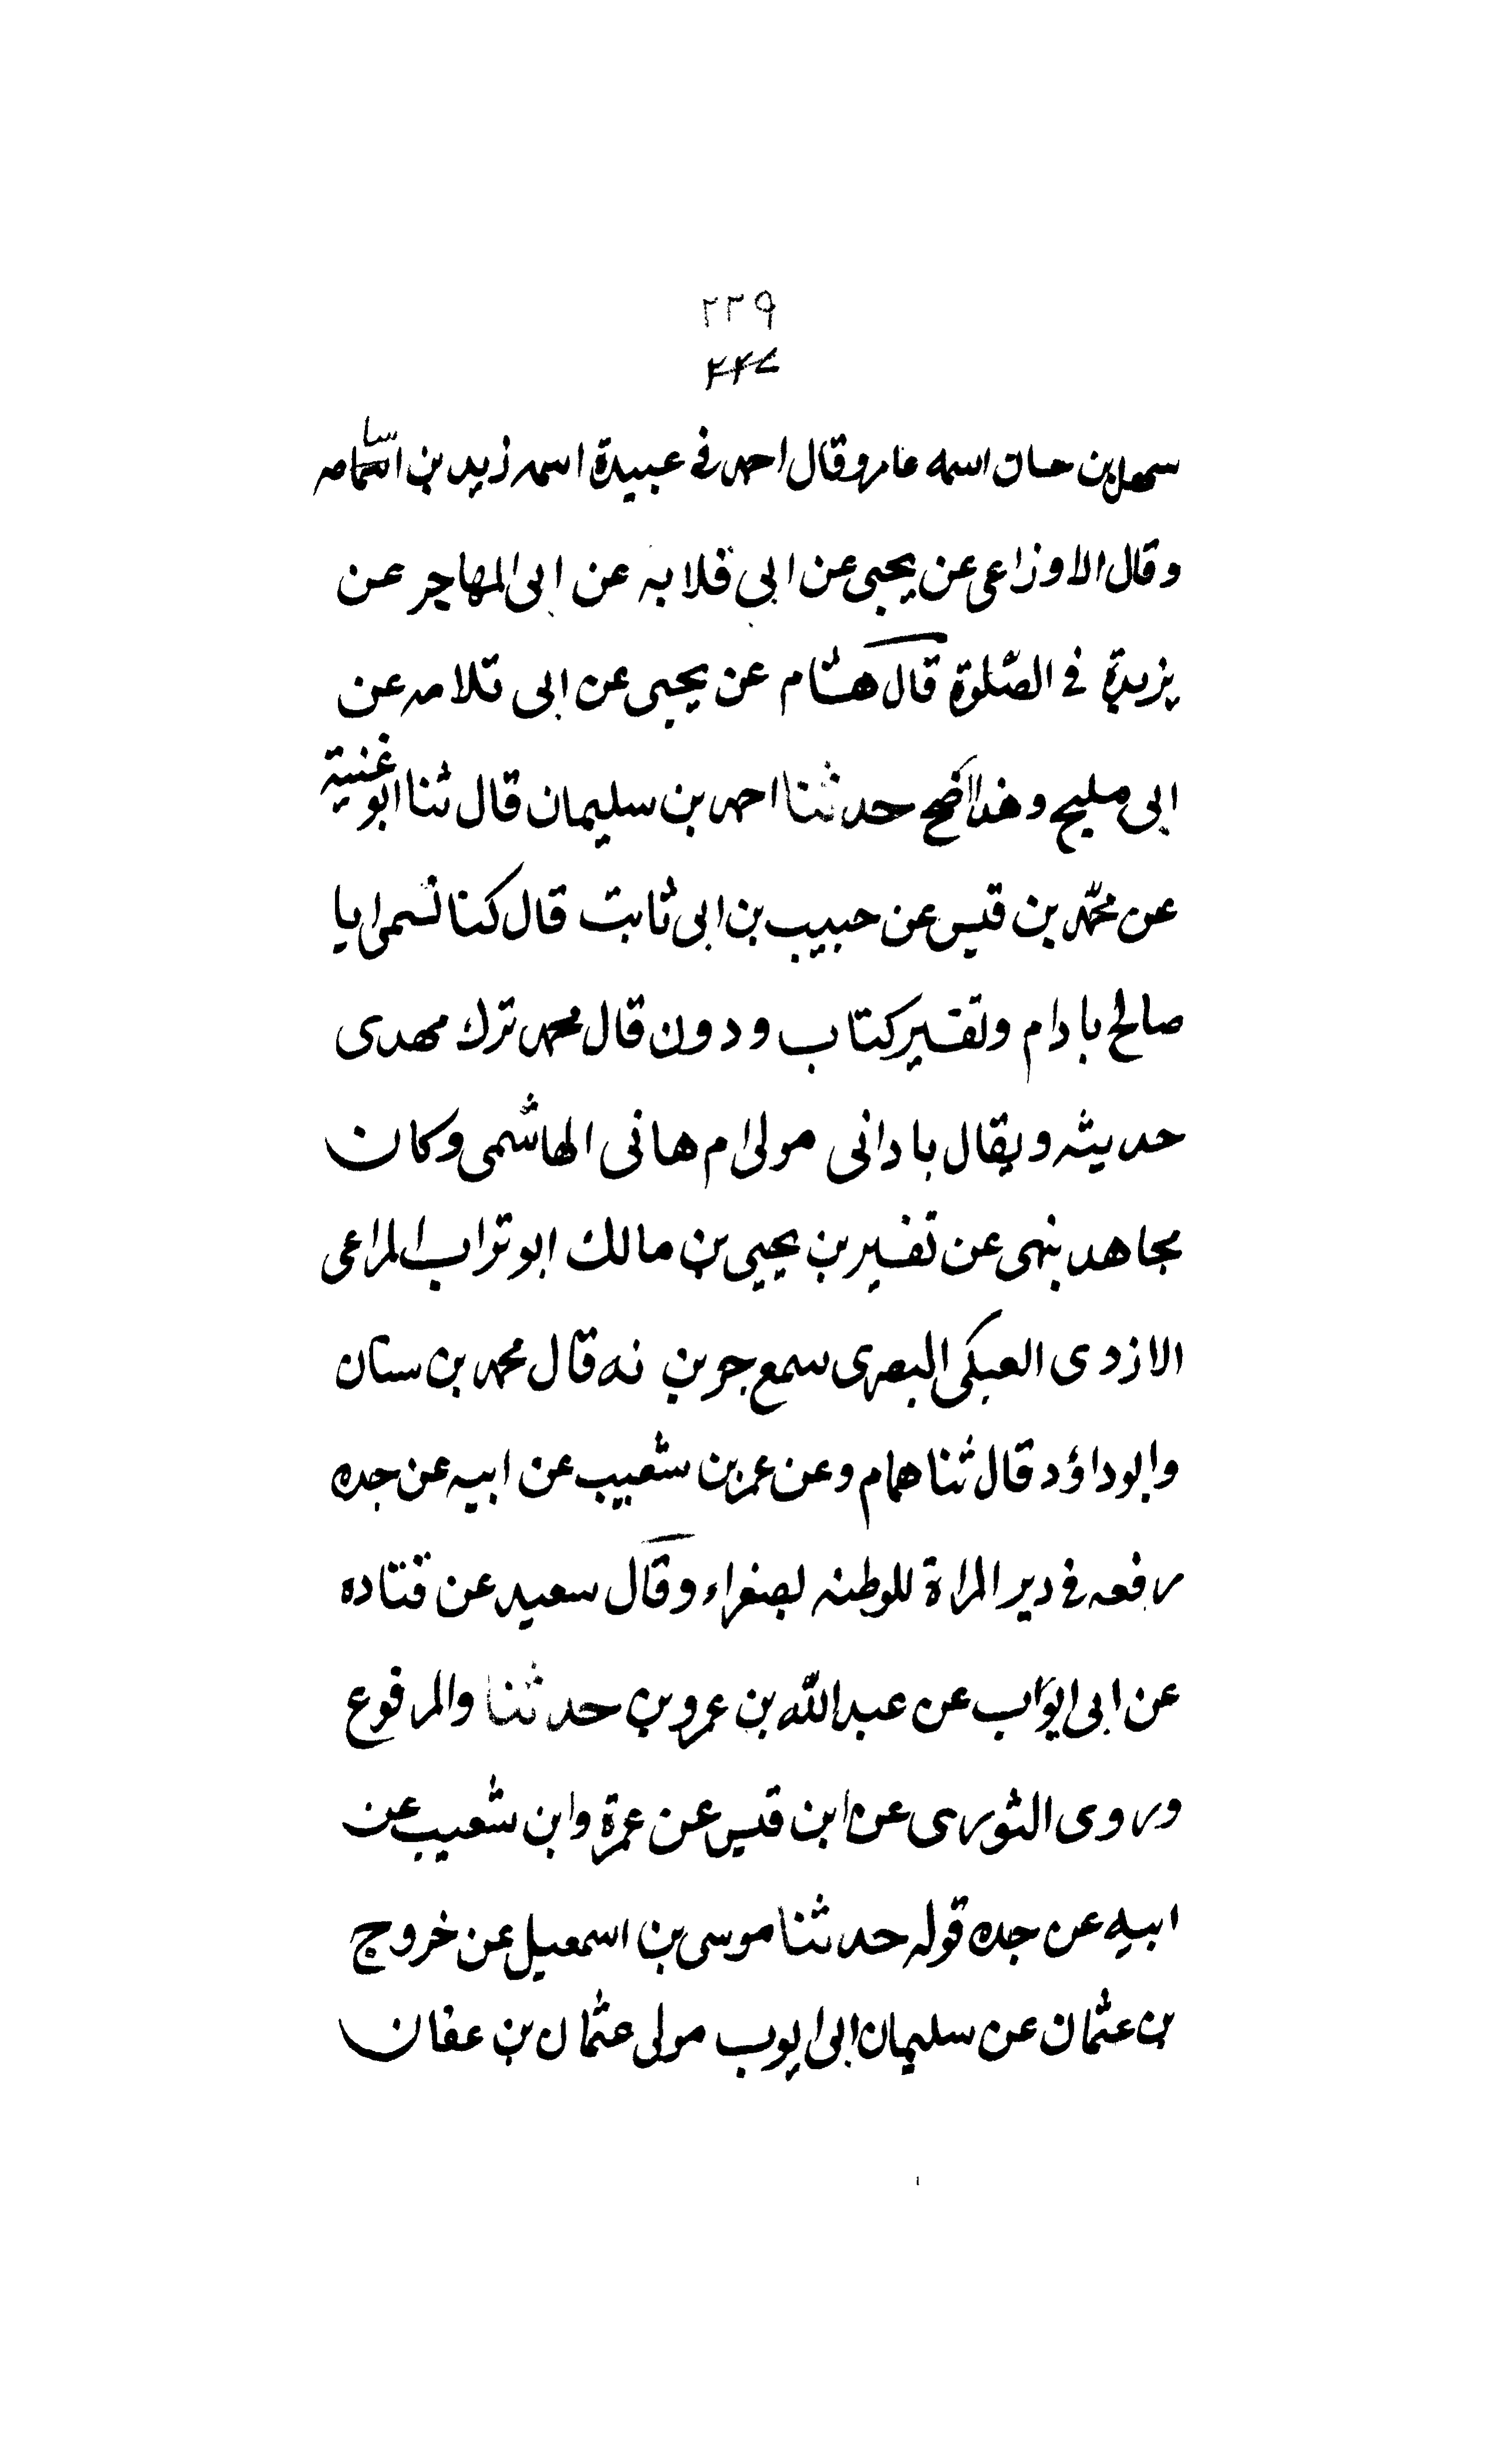 ٢٣٩
سهل بن حسان اسمه عامر وقال احمد في عبيدة اسمه زيد بن
وقال الاوزاعى عن يحيى عن ابي قلابه عن ابى المهاجر عن
بريدة فى الصلوة قال هشام عن يحيى عن ابى قلابه عن
ابى مليح وهذا اصح حدثنا احمد بن سليمان قال ثنا ابو غنية
عن محمد بن قيس عن حبيب بن ابى ثابت قال كنا نسمى ابا
صالح بادام وتفسير كتاب ودون قال محمد ترك مهدى
حديثه ويقال باذانى مولى ام هانى الهاشمى وكان
مجاهد ينهى عن تفسير بن يحيى بن مالك ابو تراب المراعى
الازدى العبكى البصرى سمع جو بن نه قال محمد بن سنان
وابو داؤد قال ثنا همام وعن عمر بن شعيب عن ابيه عن جده
رفعه فى دبر المراة للوطنه لصغراء وقال سعيد عن قتاده
عن ابى ايواب عن عبد الله بن عمرو بن حدثنا والمرفوع
وروى الثورى عن ابن قيس عن عمرة وابن شعيب عن
ابيه عن جده قوله حدثنا موسى بن اسمعيل عن خروج
بن عثمان عن سليمان ابى ايوب مولى عثمان بن عفان